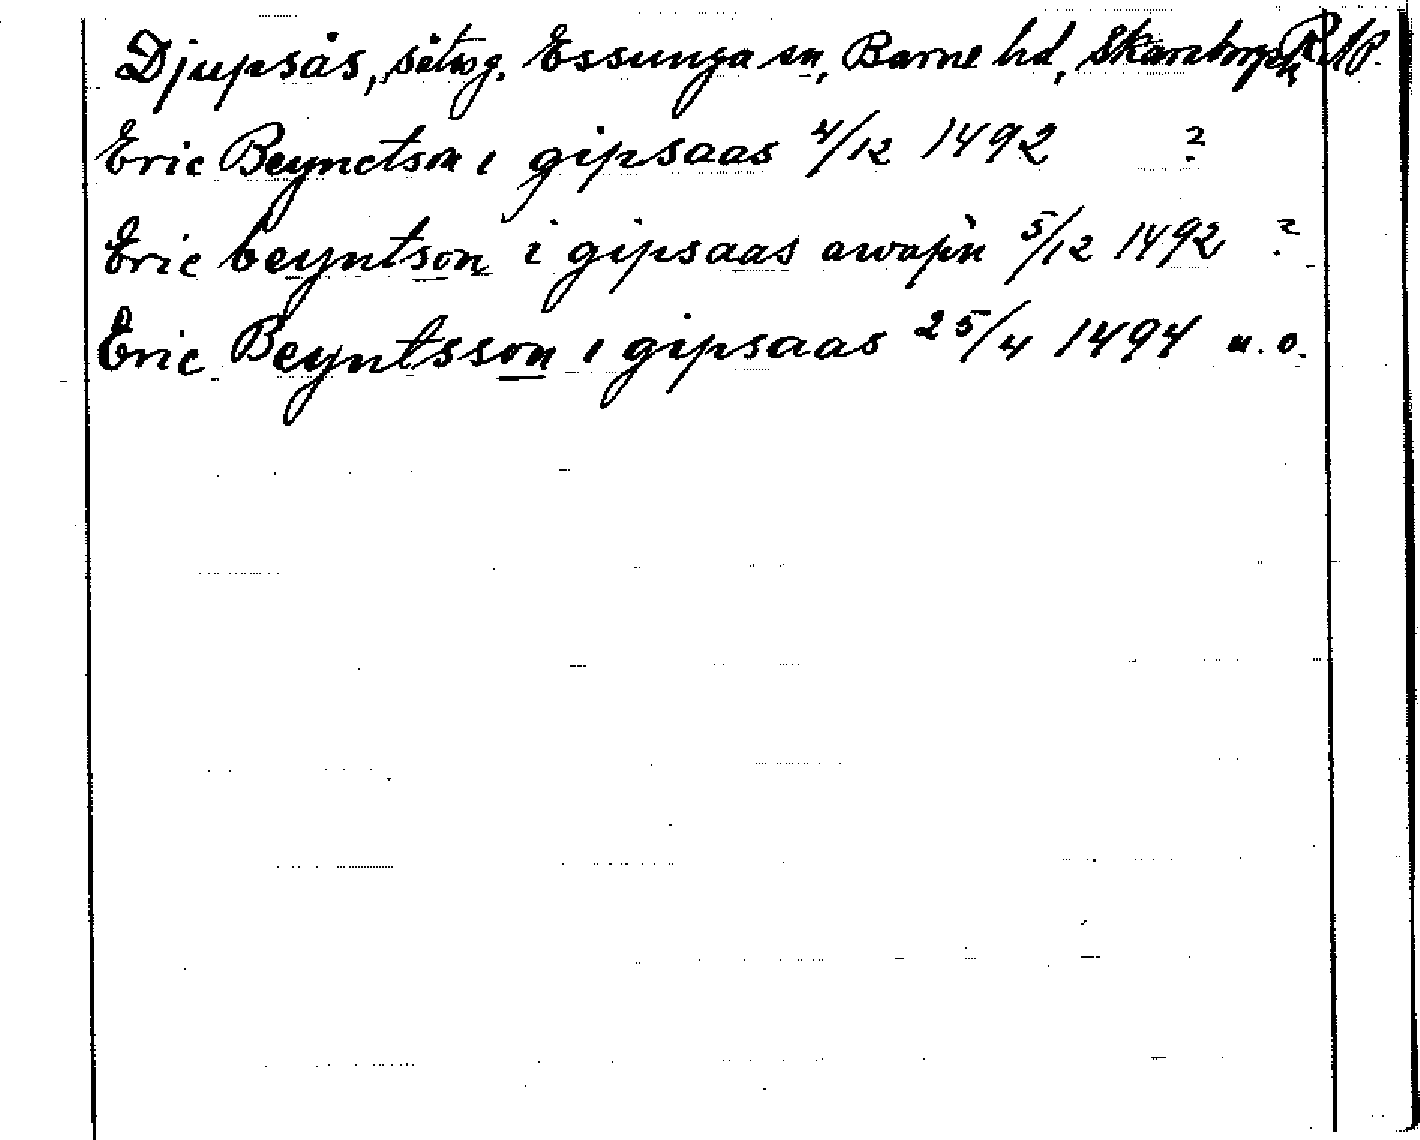 Djupsås, sätesg. Essunga sn, Barne hd, Skaraborgs
Eric Beynctson i gipsaas 4/12 1492 ?
Eric beyntson i gipsaas awapn 5/12 1492 ?
Eric Beyntsson i gipsaas 25/4 1494 u.o.